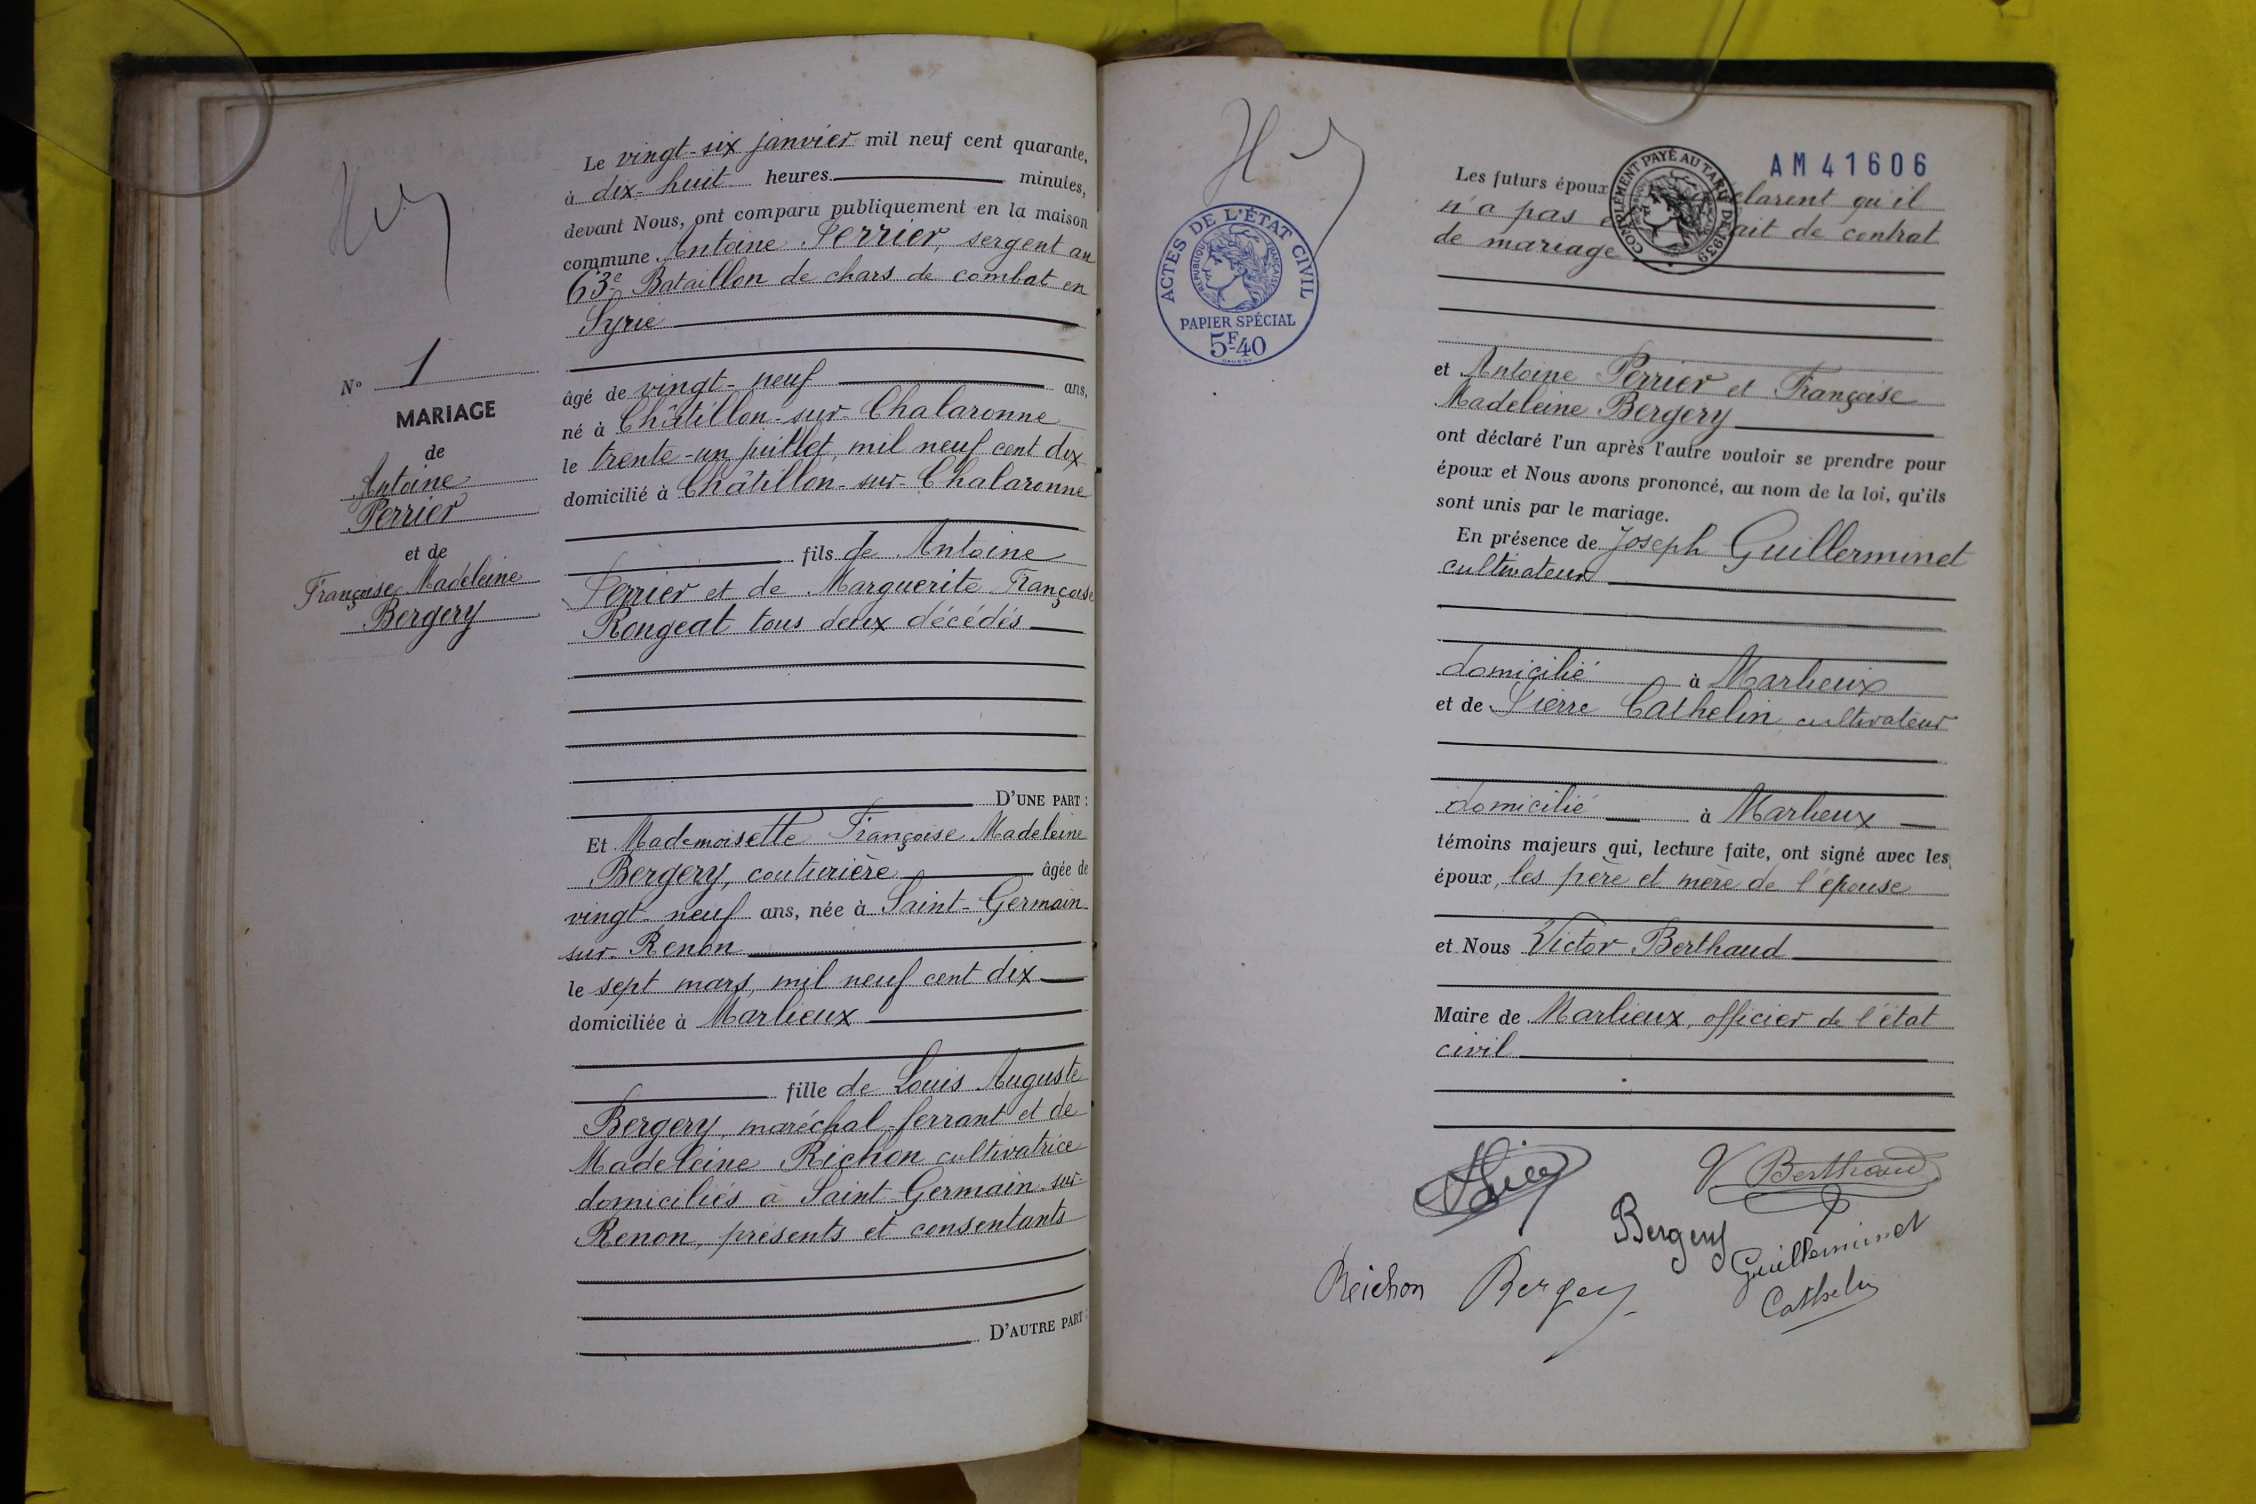 N° 1
MARIAGE
de
Antoine
Perrier
et de
Françoise Madeleine
Bergery
Le vingt-six janvier mil neuf cent quarante,
à dix-huit heures minutes,
devant Nous, ont comparu publiquement en la maison
commune Antoine Perrier, sergent au
63e Bataillon de chars de combat en
Syrie
âgé de vingt-neuf ans,
né à Châtillon-sur-Chalaronne
le trente-un juillet, mil neuf cent dix
domicilié à Châtillon-sur-Chalaronne
fils de Antoine
Perrier et de Marguerite Françoise
Rongeat tous deux décédés
D'UNE PART :
Et Mademoiselle Françoise Madeleine
Bergery, couturière âgée de
vingt-neuf ans, née à Saint-Germain-
sur-Renon
le sept mars, mil neuf cent dix
domiciliée à Marlieux
fille de Louis Auguste
Bergery, maréchal-ferrant et de
Madeleine Richon cultivatrice
domiciliés à Saint-Germain-sur-
Renon, présents et consentants
D'AUTRE PART :
ACTES DE L'ÉTAT CIVIL
RÉPUBLIQUE FRANÇAISE
PAPIER SPÉCIAL
5F.40
AM41606
COMPLÉMENT PAYÉ AU TARIF DE 1939
Les futurs époux clarent qu'il
n'a pas ait de contrat
de mariage
et Antoine Perrier et Françoise
Madeleine Bergery
ont déclaré l'un après l'autre vouloir se prendre pour
époux et Nous avons prononcé, au nom de la loi, qu'ils
sont unis par le mariage.
En présence de Joseph Guillerminet
cultivateur
domicilié à Marlieux
et de Pierre Cathelin cultivateur
domicilié à Marlieux
témoins majeurs qui, lecture faite, ont signé avec les
époux, les père et mère de l'épouse
et Nous Victor Berthaud
Maire de Marlieux, officier de l'état
civil
V Berthaud
Bergery
Guilleminet
Reichon Bergery
Cathelin